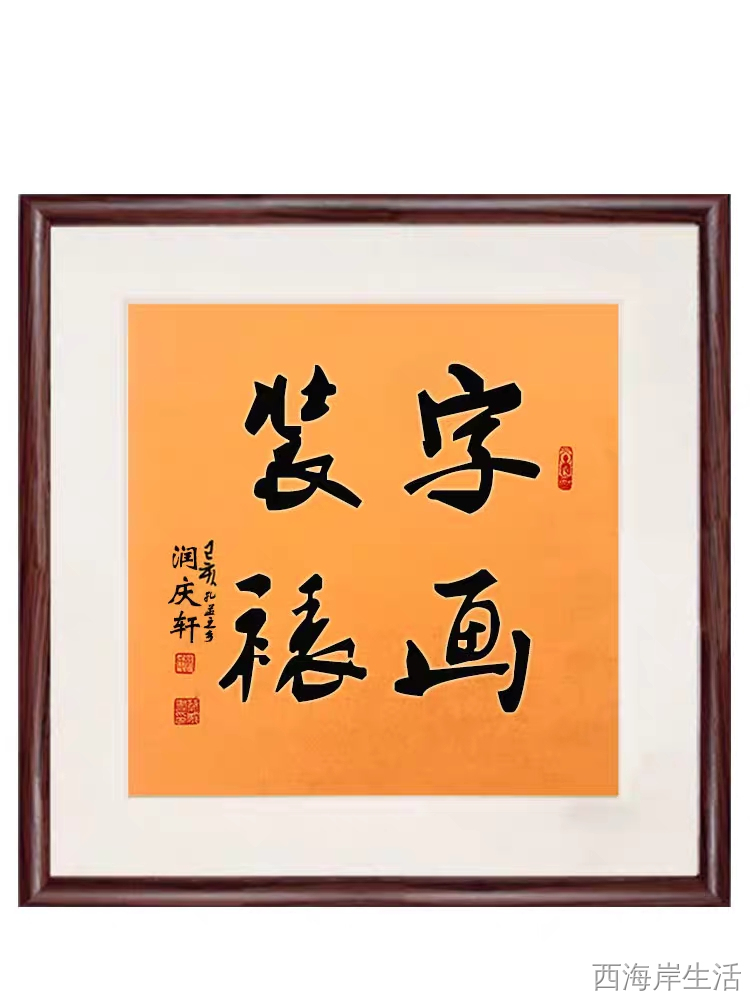 字画
装裱
己亥
润庆轩
西海岸生活